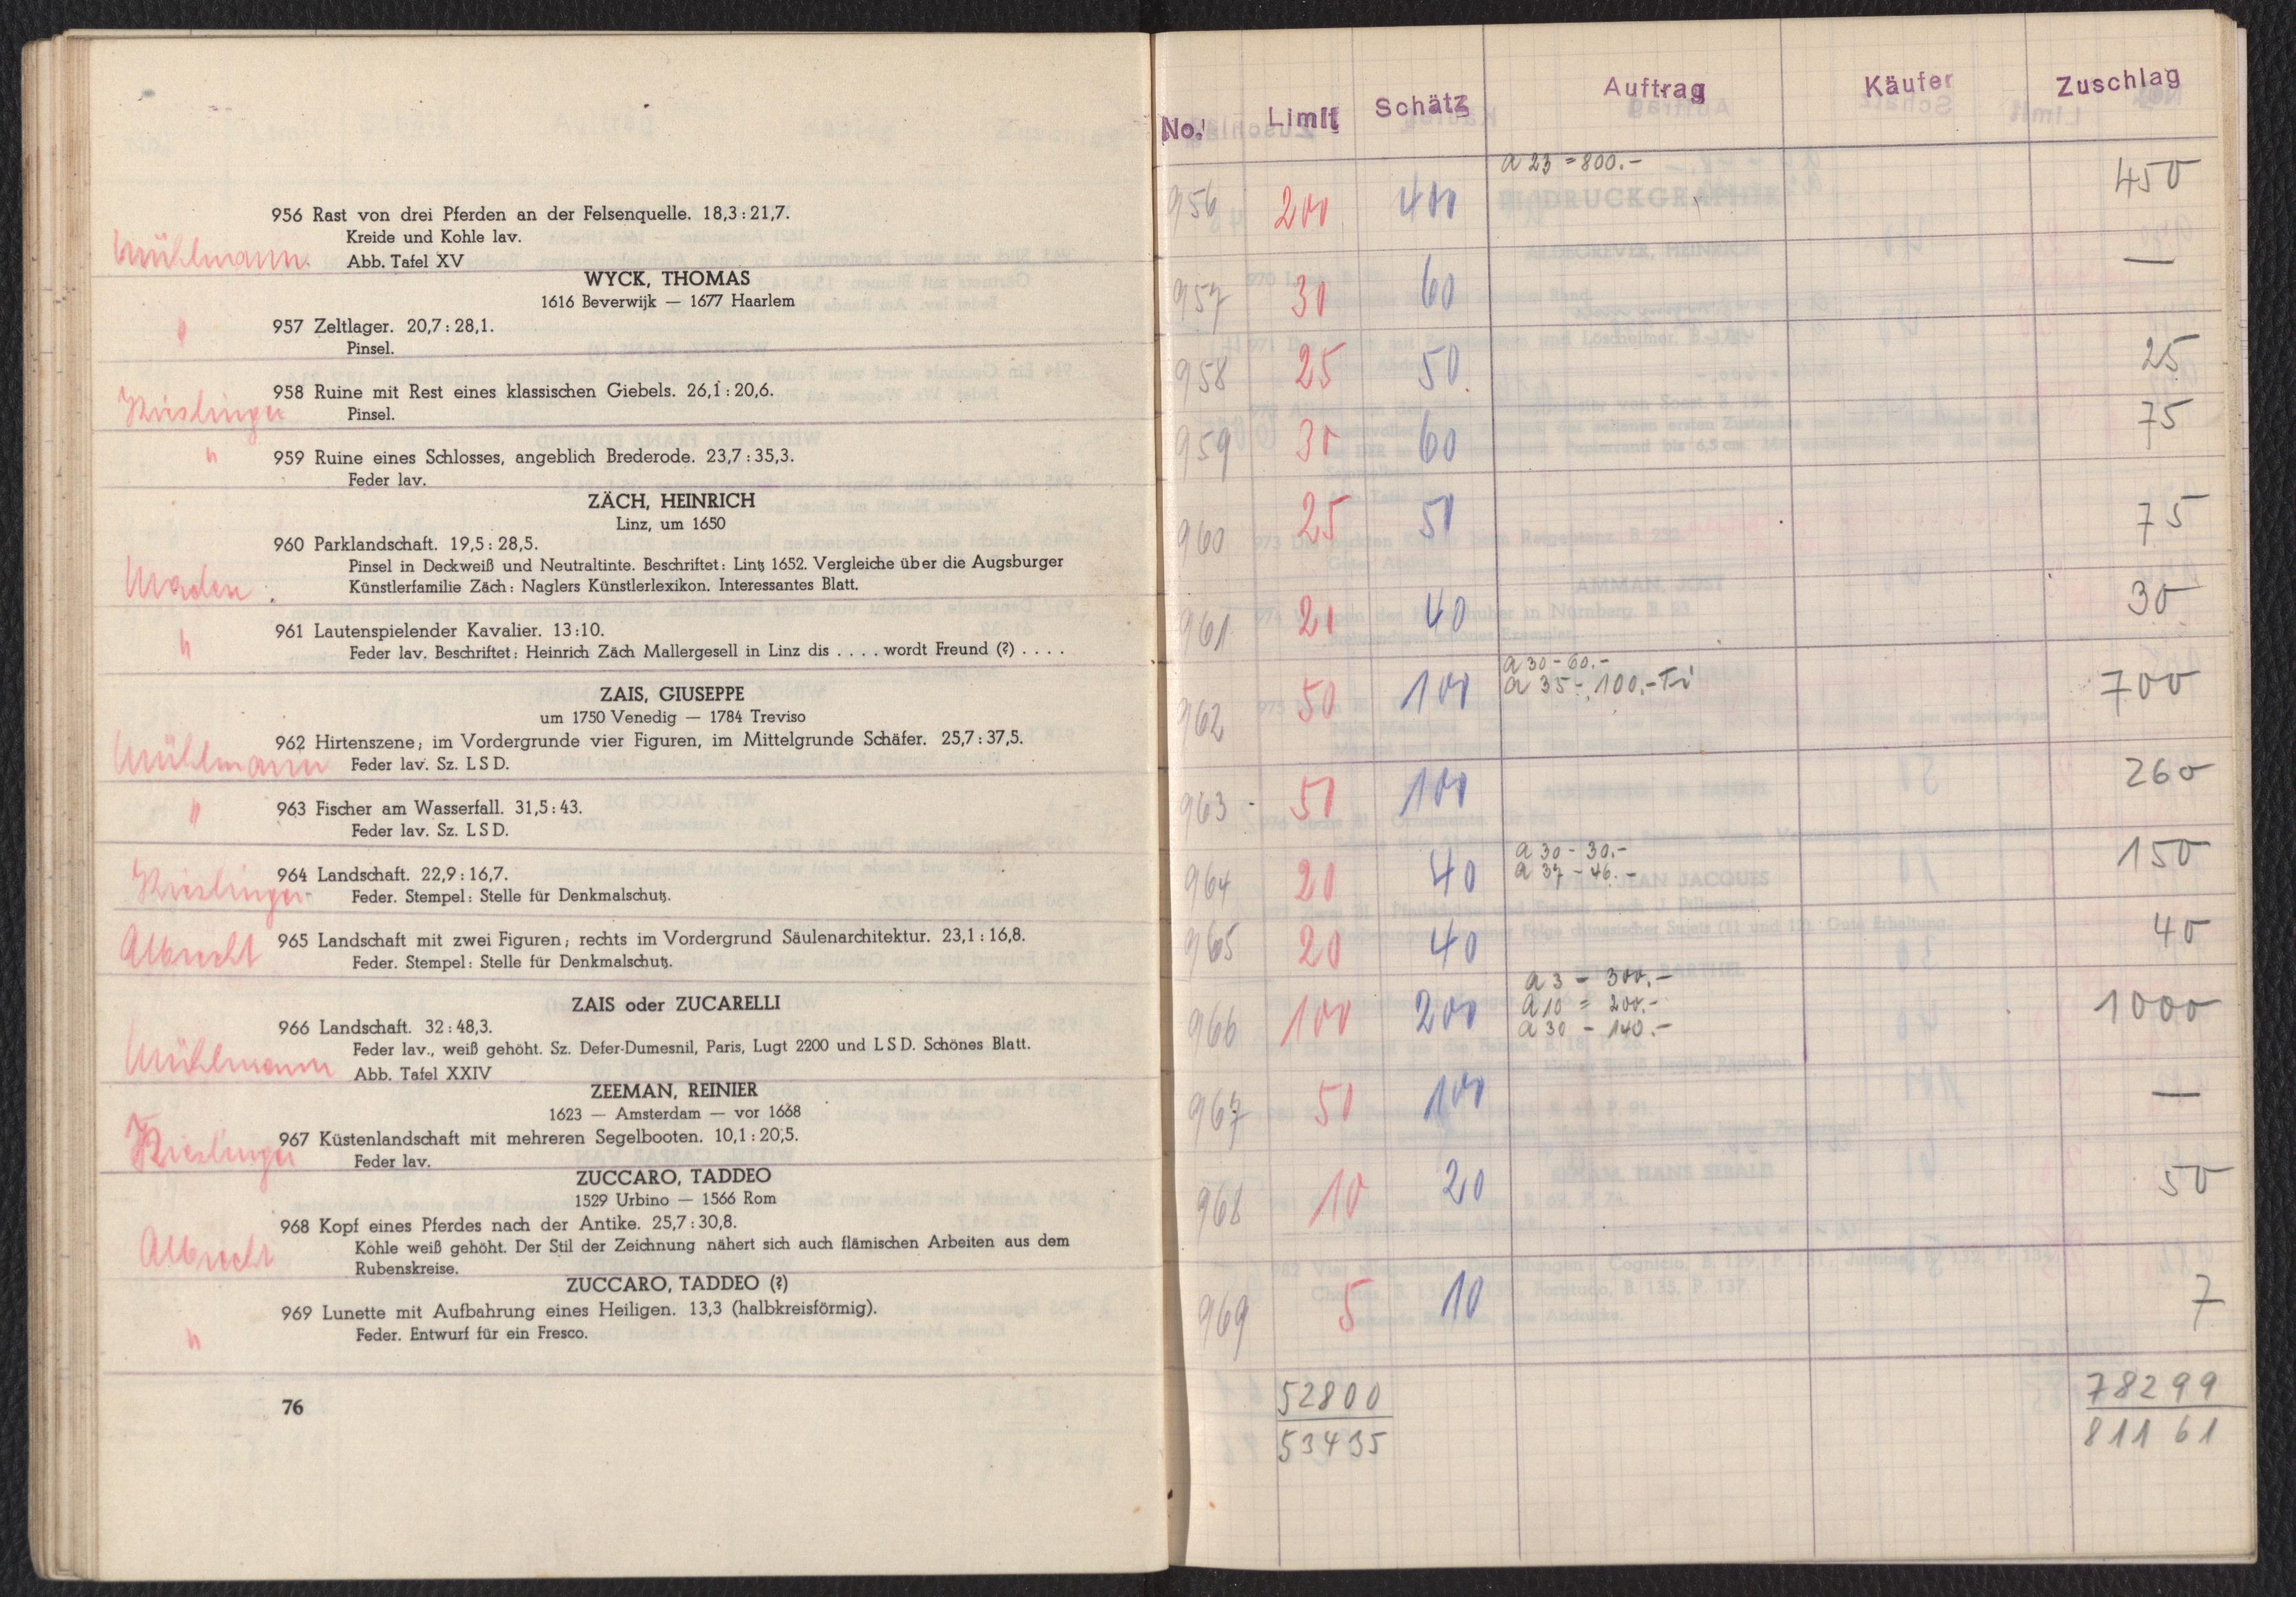 956 Rast von drei Pferden an der Felsenquelle. 18,3 : 21,7.
Kreide und Kohle lav.
Mühlmann Abb. Tafel XV
WYCK, THOMAS
1616 Beverwijk — 1677 Haarlem
" 957 Zeltlager. 20,7 : 28,1.
Pinsel.
958 Ruine mit Rest eines klassischen Giebels. 26,1 : 20,6.
Kieslinger Pinsel.
" 959 Ruine eines Schlosses, angeblich Brederode. 23,7 : 35,3.
Feder lav.
ZÄCH, HEINRICH
Linz, um 1650
960 Parklandschaft. 19,5 : 28,5.
Pinsel in Deckweiß und Neutraltinte. Beschriftet: Lintz 1652. Vergleiche über die Augsburger
Künstlerfamilie Zäch: Naglers Künstlerlexikon. Interessantes Blatt.
" 961 Lautenspielender Kavalier. 13:10.
Feder lav. Beschriftet: Heinrich Zäch Mallergesell in Linz dis . . . . wordt Freund (?) . . . .
ZAIS, GIUSEPPE
um 1750 Venedig — 1784 Treviso
962 Hirtenszene; im Vordergrunde vier Figuren, im Mittelgrunde Schäfer. 25,7 : 37,5.
Mühlmann Feder lav. Sz. L S D.
" 963 Fischer am Wasserfall. 31,5 : 43.
Feder lav. Sz. L S D.
964 Landschaft. 22,9 : 16,7.
Kieslinger Feder. Stempel: Stelle für Denkmalschutz.
Albrecht 965 Landschaft mit zwei Figuren; rechts im Vordergrund Säulenarchitektur. 23,1 : 16,8.
Feder. Stempel: Stelle für Denkmalschutz.
ZAIS oder ZUCARELLI
966 Landschaft. 32 : 48,3.
Feder lav., weiß gehöht. Sz. Defer-Dumesnil, Paris, Lugt 2200 und L S D. Schönes Blatt.
Mühlmann Abb. Tafel XXIV
ZEEMAN, REINIER
1623 — Amsterdam — vor 1668
967 Küstenlandschaft mit mehreren Segelbooten. 10,1 : 20,5.
Kieslinger Feder lav.
ZUCCARO, TADDEO
1529 Urbino — 1566 Rom
968 Kopf eines Pferdes nach der Antike. 25,7 : 30,8.
Albrecht Kohle weiß gehöht. Der Stil der Zeichnung nähert sich auch flämischen Arbeiten aus dem
Rubenskreise.
ZUCCARO, TADDEO (?)
969 Lunette mit Aufbahrung eines Heiligen. 13,3 (halbkreisförmig).
" Feder. Entwurf für ein Fresco.
76
No. Limit Schätz Auftrag Käufer Zuschlag
a 23 = 800.-
956 200 400 450
957 30 60 —
958 25 50 25
959 30 60 75
960 25 50 75
961 20 40 30
a 30 - 60.-
962 50 100 a 35 - 100.- Ti 700
963 - 50 100 260
a 30 - 30.-
964 20 40 a 37 - 46.- 150
965 20 40 40
a 3 - 300.-
966 100 200 a 10 = 200.- 1000
a 30 - 140.-
967 50 100 —
968 10 20 50
969 5 10 7
52800 78299
53435 81161